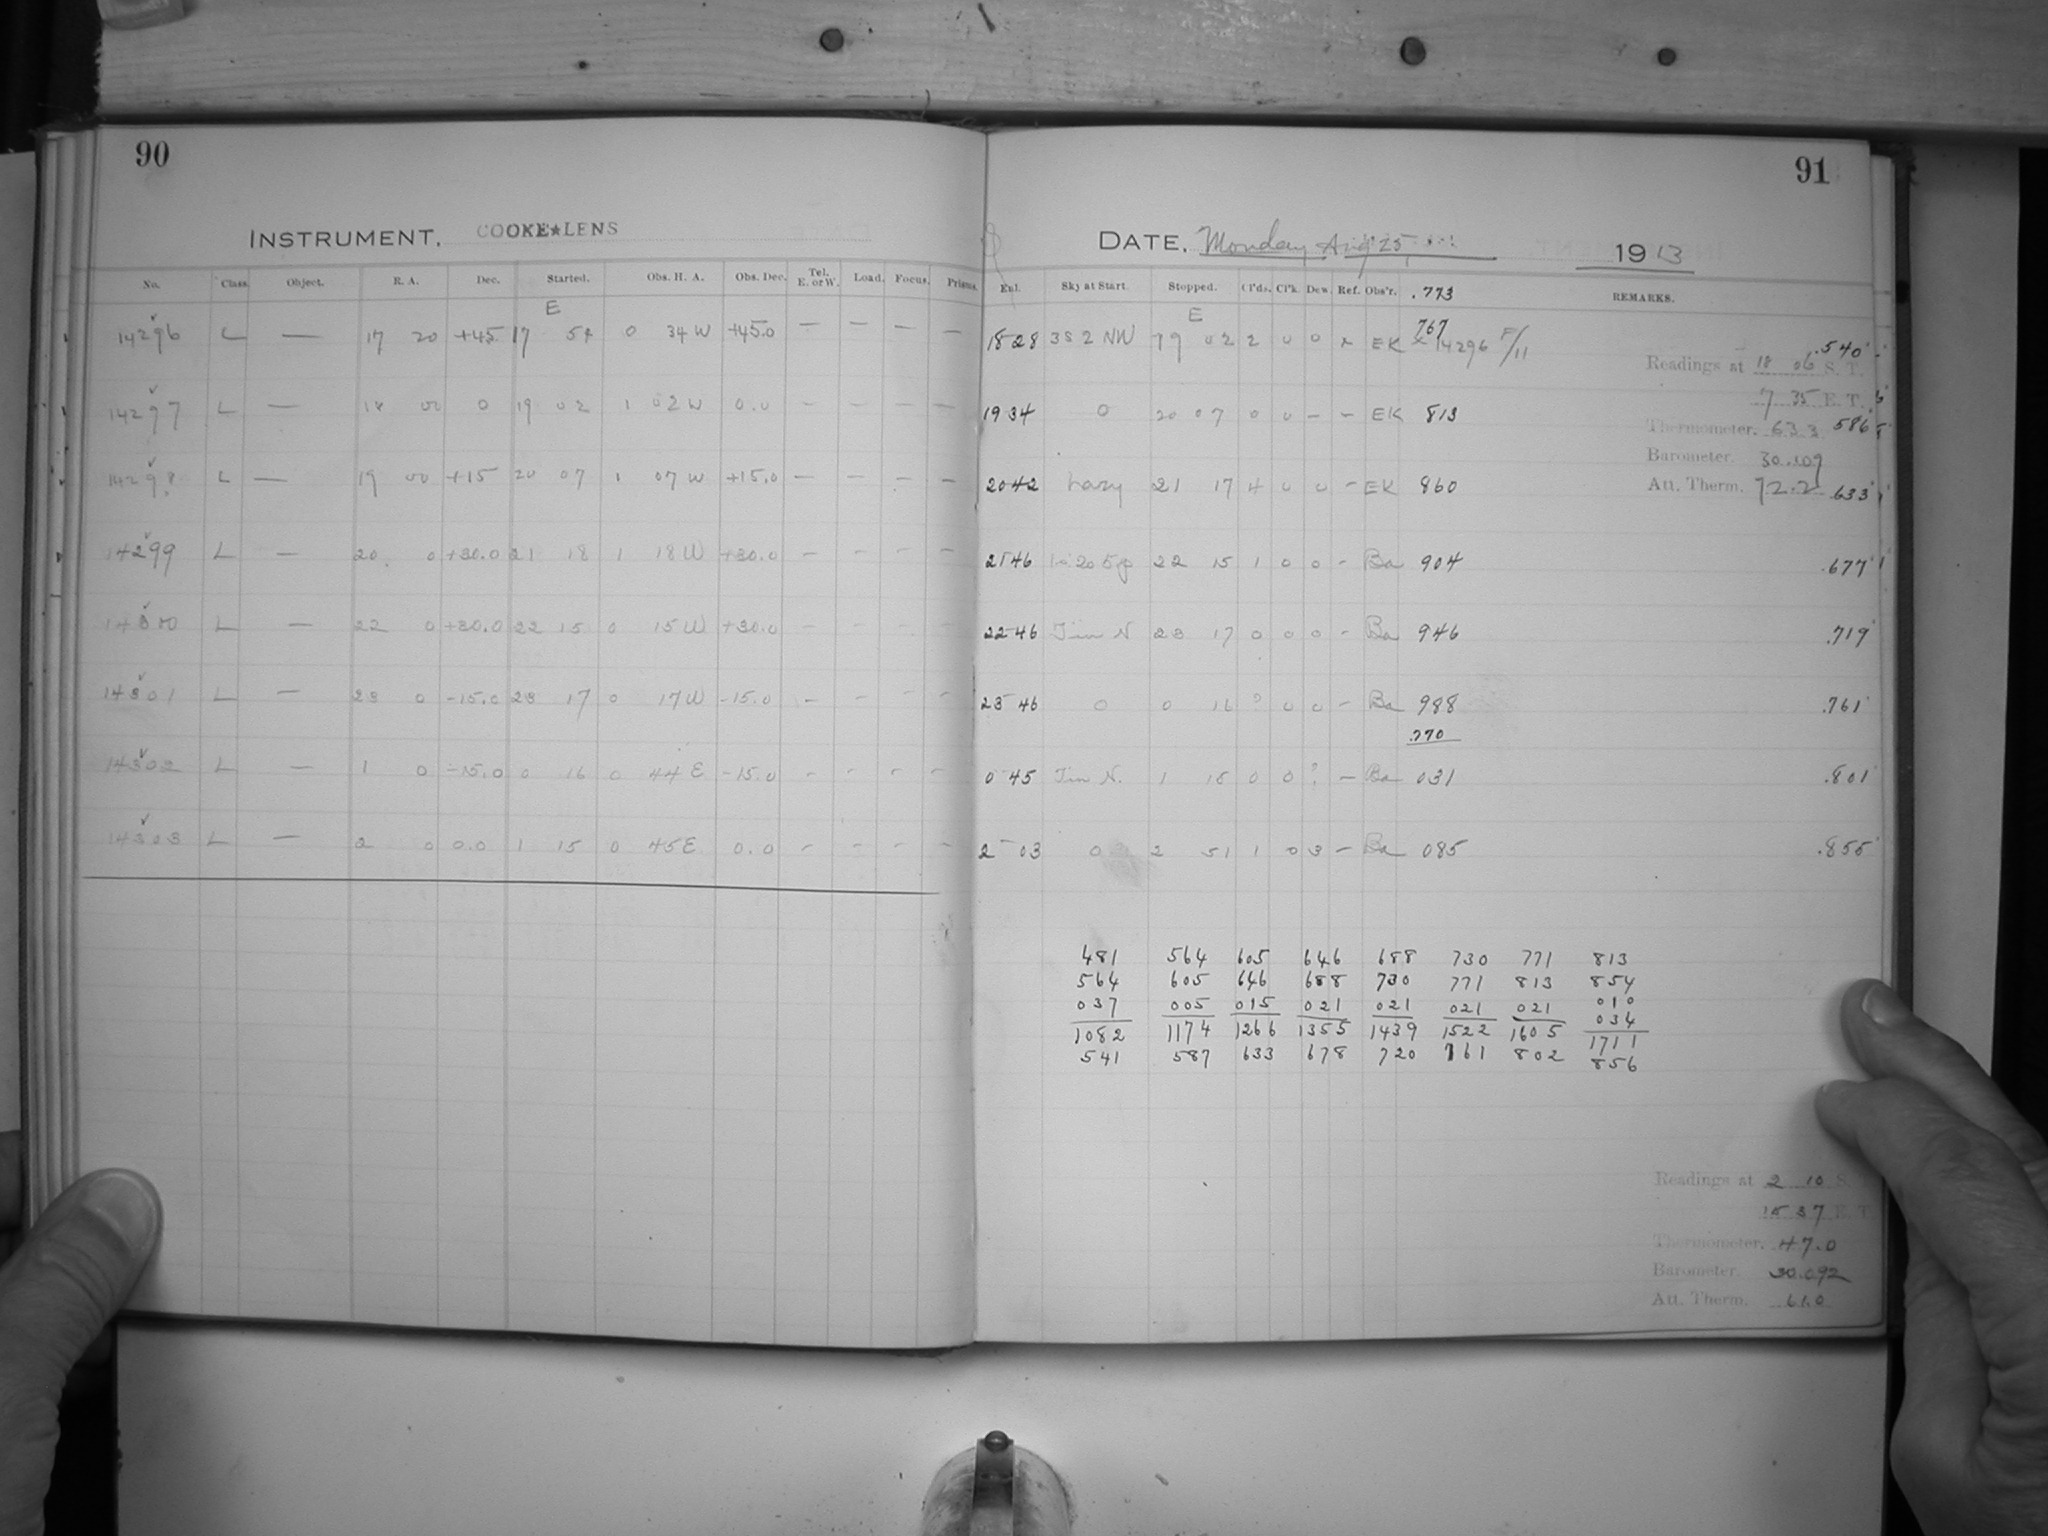 90
INSTRUMENT, COOKE★LENS
No. Class. Object. R. A. Dec. Started. Obs. H. A. Obs. Dec. Tel. E. or W. Load. Focus. Prisms.
E
14296 L — 17 20 +45 17 54 0 34 W +45.0 — — — —
14297 L — 18 00 0 19 02 1 02 W 0.0 — — — —
14298 L — 19 00 +15 20 07 1 07 W +15.0 — — — —
14299 L — 20 0 +30.0 21 18 1 18 W +30.0 — — — —
14300 L — 22 0 +30.0 22 15 0 15 W +30.0 — — — —
14301 L — 23 0 -15.0 23 17 0 17 W -15.0 — — — —
14302 L — 1 0 -15.0 0 16 0 44 E -15.0 — — — —
14303 L — 2 0 0.0 1 15 0 45 E 0.0 — — — —
91
DATE, Monday Aug 25, 1913
Exl. Sky at Start. Stopped. Cl'ds. Cl'k. Dew. Ref. Obs'r. .773 REMARKS.
E
18 28 3S 2 NW 19 02 2 0 0 EK 767 14296 F/11 .540
Readings at 18 06 S. T.
7 35 E. T.
19 34 0 20 07 0 0 — — EK 813 586
Thermometer. 63.3
Barometer. 30.109
Att. Therm. 72.2
20 42 hazy 21 17 4 0 0 — EK 860 .633
21 46 22 15 1 0 0 — Ba 904 .677
22 46 23 17 0 0 0 — Ba 946 .719
23 46 0 0 16 ? 0 0 — Ba 988 .761
.770
0 45 1 15 0 0 ? — Ba 031 .801
2 03 0 2 51 1 0 3 — Ba 085 .855
481 564 605 646 688 730 771 813
564 605 646 688 730 771 813 854
037 005 015 021 021 021 021 010
034
1082 1174 1266 1355 1439 1522 1605 1711
541 587 633 678 720 761 802 856
Readings at 2 10 S.
15 37 E. T.
Thermometer. 47.0
Barometer. 30.092
Att. Therm. 61.0